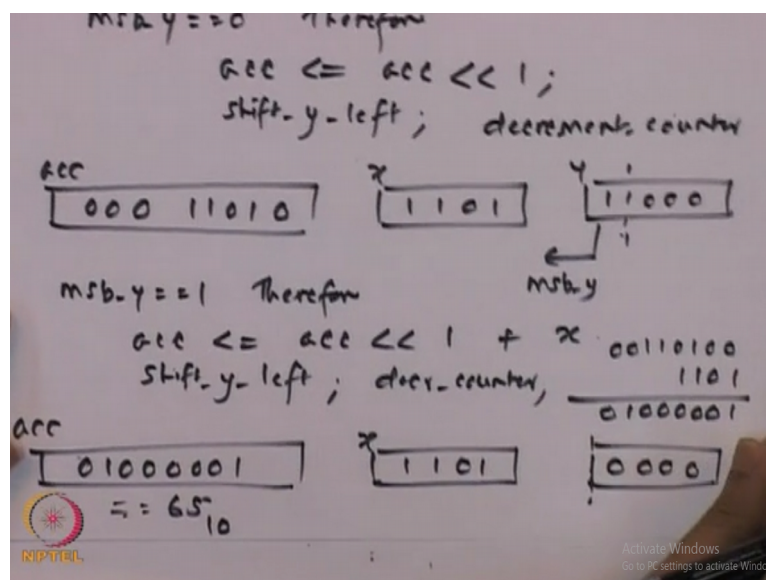 msb y = = 0 Therefore
acc <= acc << 1 ;
shift_y_left ; decrement_counter
acc x y
000 11010 1101 11000
msb_y
msb_y = = 1 Therefore
acc <= acc << 1 + x 00110100
shift_y_left ; decr_counter, 1101
01000001
acc x
01000001 1101 0000
= 65 10
NPTEL
Activate Windows
Go to PC settings to activate Windo